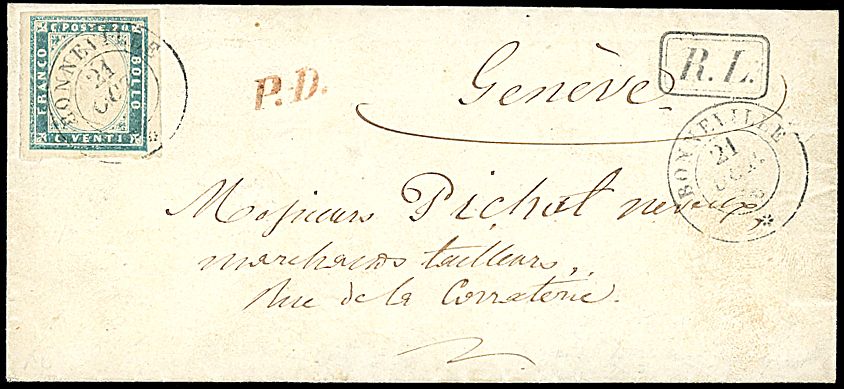 C. POSTE 20
FRANCO
BOLLO
C. VENTI
BONNEVILLE
21
OC
P.D.
Genève
R.L.
BONNEVILLE
21
OC
Messieurs Pichot neveux
marchands tailleurs
Rue de la Corraterie.